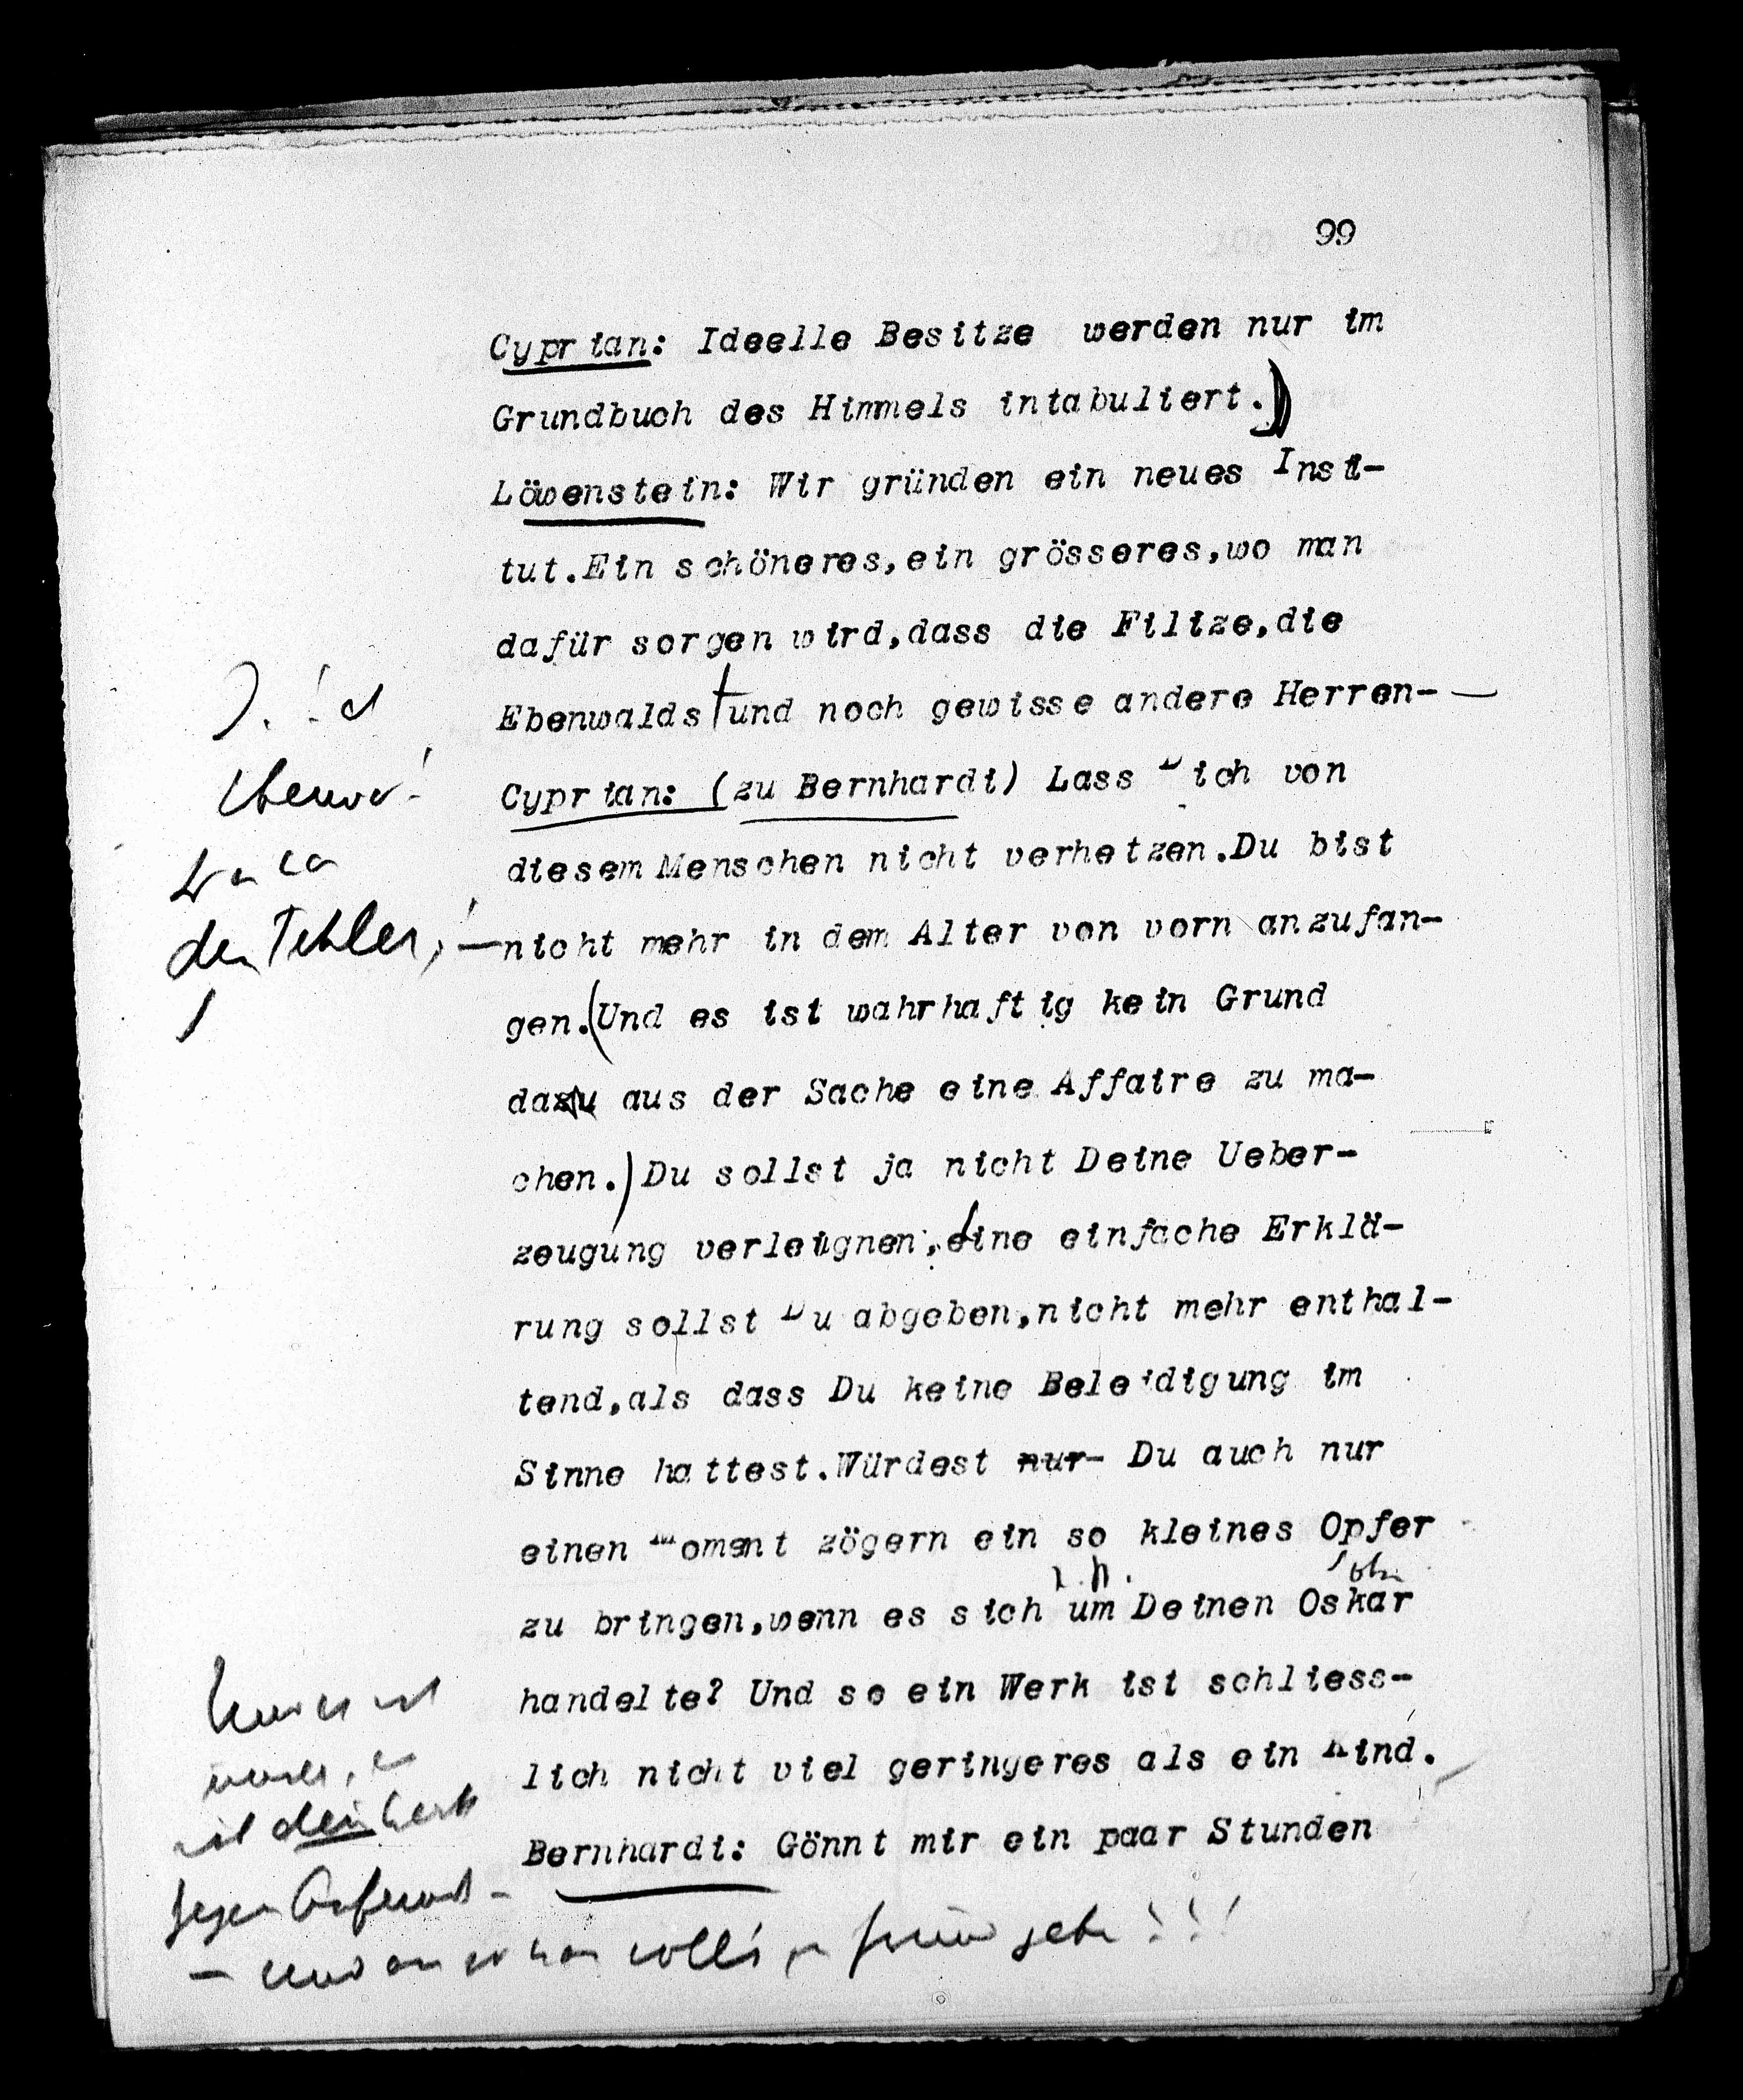 99
Cyprian: Ideelle Besitze werden nur im
Grundbuch des Himmels intabuliert.)
Löwenstein: Wir gründen ein neues Insti-
tut.Ein schöneres,ein grösseres,wo man
dafür sorgen wird,dass die Filize,die
Ebenwalds und noch gewisse andere Herren- —
Cyprian: (zu Bernhardi) Lass Dich von
diesem Menschen nicht verhetzen.Du bist
den Fehler,
nicht mehr in dem Alter von vorn anzufan-
gen.(Und es ist wahrhaftig kein Grund
da aus der Sache eine Affaire zu ma-
chen.) Du sollst ja nicht Deine Ueber-
zeugung verleugnen, eine einfache Erklä-
rung sollst Du abgeben,nicht mehr enthal-
tend,als dass Du keine Beleidigung im
Sinne hattest.Würdest nur Du auch nur
einen Moment zögern ein so kleines Opfer
zu bringen,wenn es sich um Deinen Oskar
handelte? Und so ein Werk ist schliess-
lich nicht viel geringeres als ein Kind.
dein Werk
Bernhardi: Gönnt mir ein paar Stunden
gegen